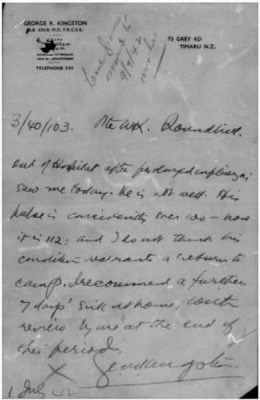 GEORGE R. KINGSTON
M.B. CH.B. M.D. F.R.C.S.E.
TELEPHONE
73 GREY RD
TIMARU N.Z.
3/40/103. Pte
Out of Hospital after prolonged influenza;
saw me today. he is not well. His
pulse is consistently over 100 - now
it is 112: and I do not think his
condition warrants a return to
camp. I recommend a further
7 days' sick at home, with
review by me at the end of
this period.
X
1 July